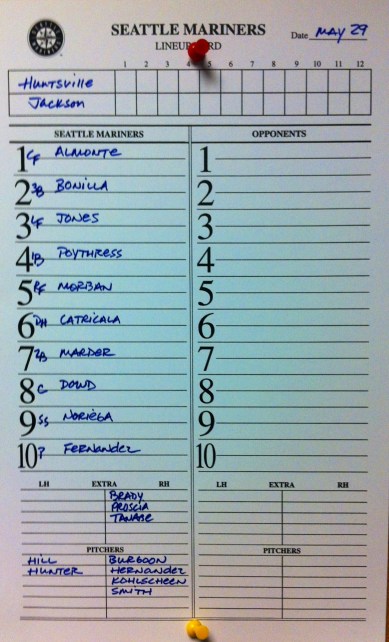 SEATTLE MARINERS
Date MAY 29
1 2 3 4 5 6 7 8 9 10 11 12
Huntsville
Jackson
SEATTLE MARINERS OPPONENTS
1 CF ALMONTE 1
2 3B BONILLA 2
3 LF JONES 3
4 1B POYTHRESS 4
5 RF MORBAN 5
6 DH CATRICALA 6
7 2B MARDER 7
8 C DOWD 8
9 SS NORIEGA 9
10 P FERNANDEZ 10
LH EXTRA RH LH EXTRA RH
BRADY
PROSCIA
TANABE
PITCHERS PITCHERS
HILL BURGOON
HUNTER HERNANDEZ
KOHLSCHEEN
SMITH